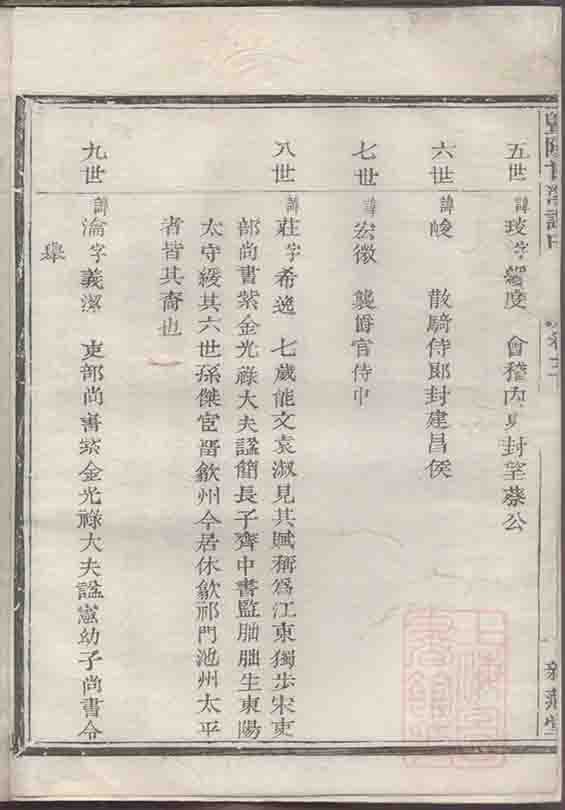 五世 諱琰字瑗度 會稽內史封望蔡公
六世 諱峻 散騎侍郎封建昌侯
七世 諱宏徵 襲爵官侍中
八世 諱莊字希逸 七歲能文袁淑見其賦稱爲江東獨步宋吏
部尚書紫金光祿大夫諡簡長子齊中書監朏朏生東陽
太守綬其六世孫傑宦晉歙州令居休歙祁門池州太平
者皆其裔也
九世 諱瀹字義潔 吏部尚書紫金光祿大夫諡憲幼子尚書令
舉
卷三